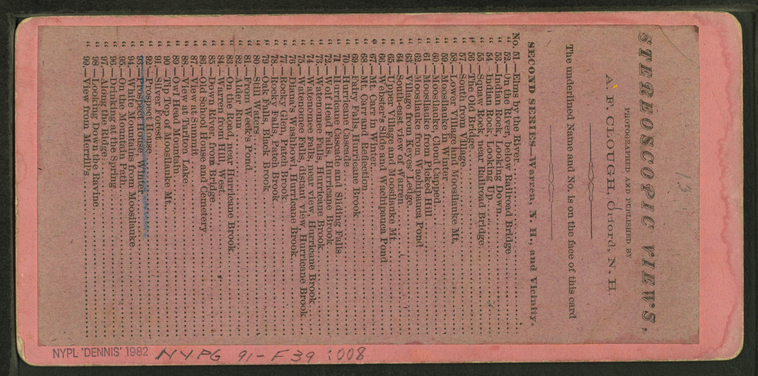 13.
STEREOSCOPIC VIEWS,
PHOTOGRAPHED AND PUBLISHED BY
A. F. CLOUGH, Orford, N. H.
The underlined Name and No. is on the face of this card
SECOND SERIES—Warren, N. H., and Vicinity.
No. 51—Elms by the River
" 52—Indian Rock, below Railroad Bridge
" 53—Indian Rock, Looking Down
" 54—Indian Rock, Looking Up
" 55—Scene near Railroad Bridge
" 56—The Old Bridge
" 57—Scene in Village
" 58—Lower Village and Moosilauke Mt.
" 59—Moosilauke in Winter
" 60—Moosilauke, Cloud Capped
" 61—Moosilauke from Picked Hill
" 62—Moosilauke from Wachipauca Pond
" 63—Village from Keyes' Ledge
" 64—South-east view of Warren
" 65—Upper Village and Moosilauke Mt.
" 66—Webster's Slide and Wachipauca Pond
" 67—Mt. Carr in Winter
" 68—Mt. Carr, Reflection
" 69—Fairy Falls, Hurricane Brook
" 70—Hurricane Cascade
" 71—Hurricane and Sliding Falls
" 72—Wolf Head Falls, Hurricane Brook
" 73—Waternomee Falls, Hurricane Brook
" 74—Waternomee Falls, near view, Hurricane Brook
" 75—Waternomee Falls, distant view, Hurricane Brook
" 76—Diana's Wash-bowl, Hurricane Brook
" 77—Rocky Glen, Patch Brook
" 78—Rocky Falls, Patch Brook
" 79—Oak Falls, Black Brook
" 80—Still Waters
" 81—From Week's Pond
" 82—Miller Rock
" 83—On the Road, near Hurricane Brook
" 84—Warren from Hill West
" 85—Warren from Keyes' Ledge
" 86—Old School House and Cemetery
" 87—View at Summit
" 88—View at Tarlton Lake
" 89—Owl Head Mountain
" 90—Tip Top of Moosilauke Mt.
" 91—Silver Forest
" 92—Prospect House
" 93—Prospect House, Winter
" 94—White Mountains from Moosilauke
" 95—On the Mountain Path
" 96—Drinking at the Spring
" 97—Along the Ridge
" 98—Looking Down the Ravine
" 99—View from Merrill's
NYPL "DENNIS" 1982 NYPG 91-F39 :008